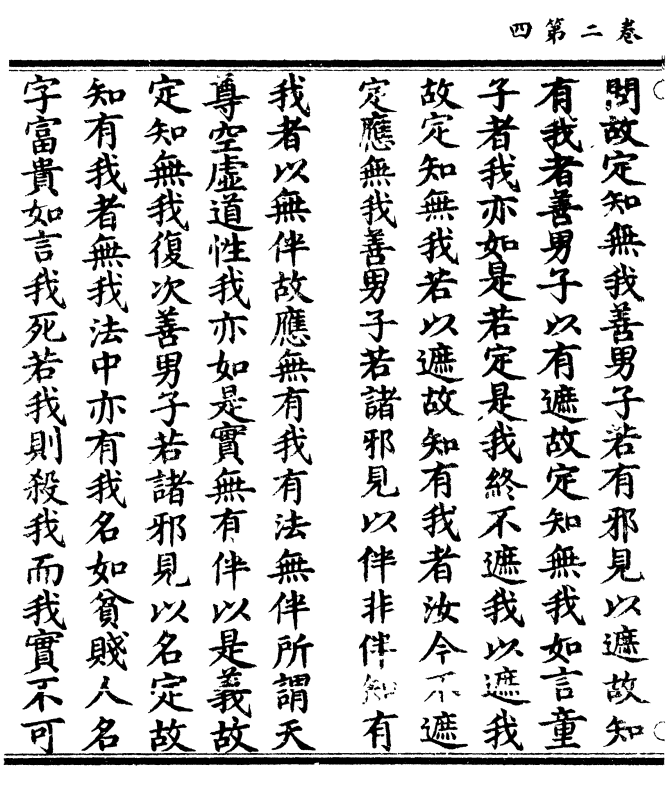 卷二第四
問故定知無我善男子若有邪見以遮故知
有我者善男子以有遮故定知無我如言童
子者我亦如是若定是我終不遮我以遮我
故定知無我若以遮故知有我者汝今不遮
定應無我善男子若諸邪見以伴非伴知有
我者以無伴故應無有我有法無伴所謂天
尊空虛道性我亦如是實無有伴以是義故
定知無我復次善男子若諸邪見以名定故
知有我者無我法中亦有我名如貧賤人名
字富貴如言我死若我則殺我而我實不可